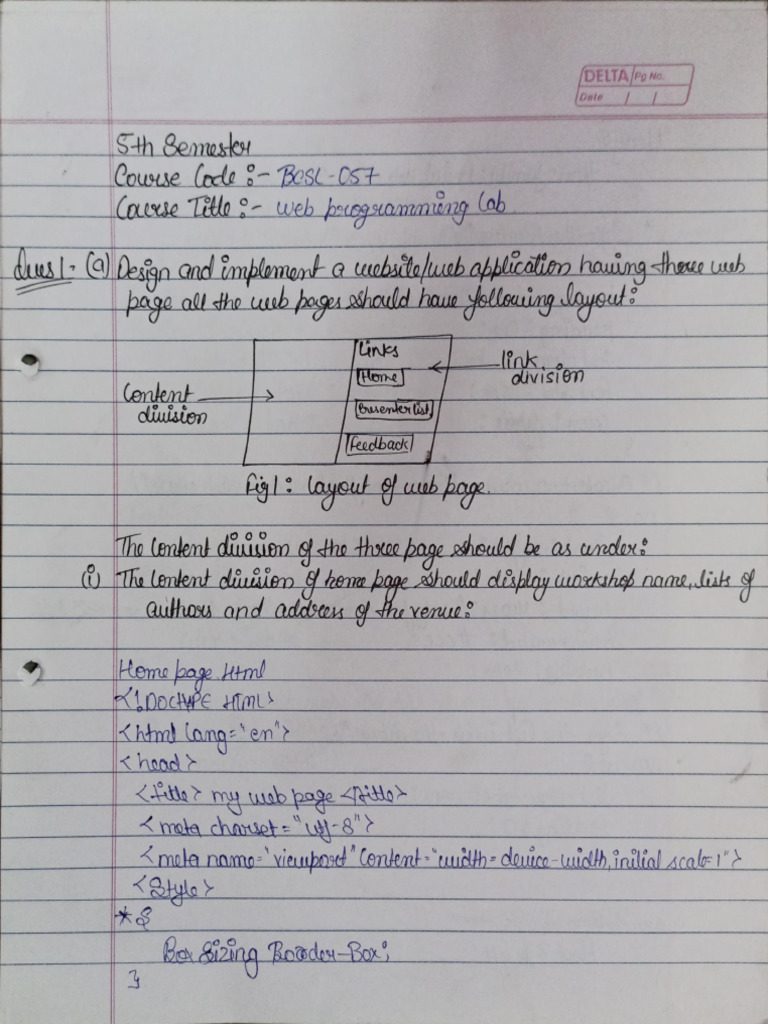 DELTA Pg No.
Date / /
5th Semester
Course Code :- BCSL-057
Course Title :- web programming Lab
Ques 1:- (a) Design and implement a website/web application having three web
page all the web pages should have following layout:
Links
Home
link
division
Content
division
Presenter list
Feedback
Fig 1: Layout of web page.
The content division of the three page should be as under:
(i) The content division of home page should display workshop name, lists of
authors and address of the venue:
Home page.Html
<!DOCTYPE HTML>
<html lang="en">
<head>
<title> my web page </title>
<meta charset="utf-8">
<meta name="viewport" content="width=device-width, initial scale=1">
<Style>
*{
Box Sizing Boarder-Box;
}